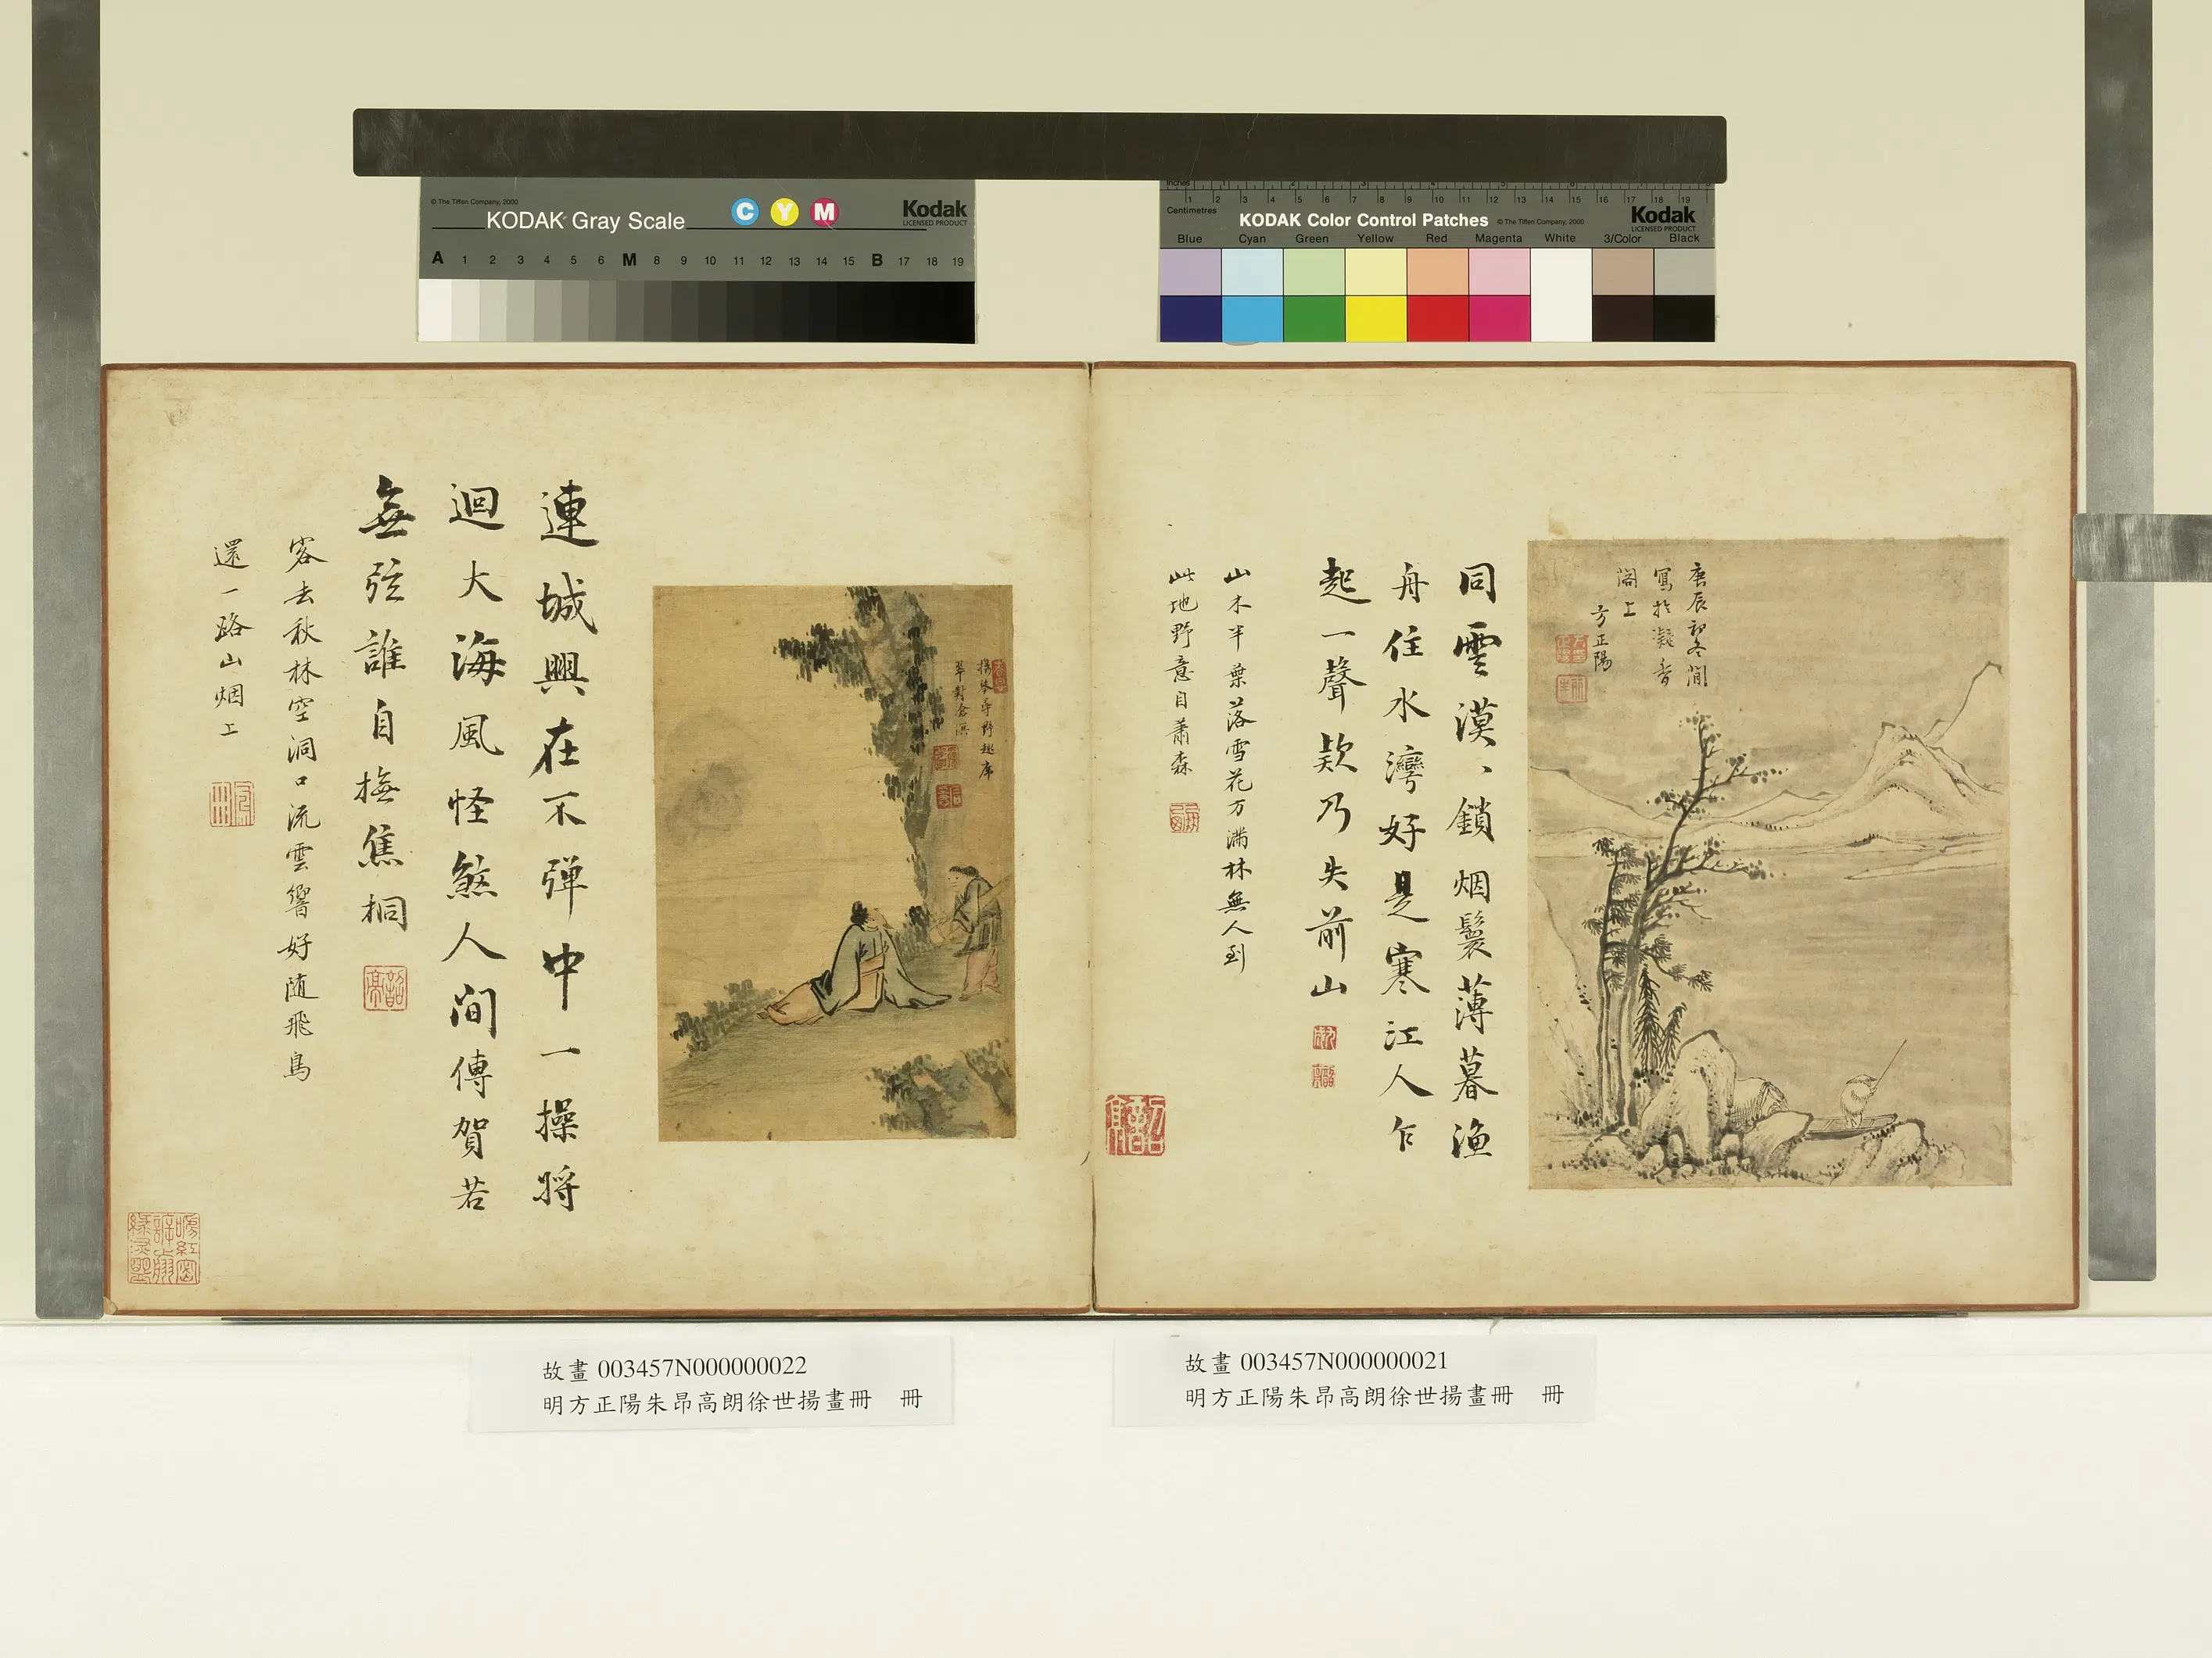 © The Tiffen Company, 2000
KODAK Gray Scale
C Y M
Kodak
LICENSED PRODUCT
A 1 2 3 4 5 6 M 8 9 10 11 12 13 14 15 B 17 18 19
Inches
Centimetres
1 2 3 4 5 6 7 8 9 10 11 12 13 14 15 16 17 18 19
KODAK Color Control Patches
© The Tiffen Company, 2000
Kodak
LICENSED PRODUCT
Blue Cyan Green Yellow Red Magenta White 3/Color Black
庚辰初冬閒
寫於凝香
閣上
方正陽
同雲漠、鎖烟鬟薄暮漁
舟住水灣好是寒江人乍
起一聲欵乃失前山
山木半葉落雪花万滿林無人到
此地野意自蕭森
野趣席
翠對
連城興在不弾中一操将
迴大海風怪煞人间傳賀若
無弦誰自撫焦桐
客去秋林空洞口流雲響好随飛鳥
還一路山烟上
故畫 003457N000000022
明方正陽朱昂高朗徐世揚畫冊 冊
故畫 003457N000000021
明方正陽朱昂高朗徐世揚畫冊 冊